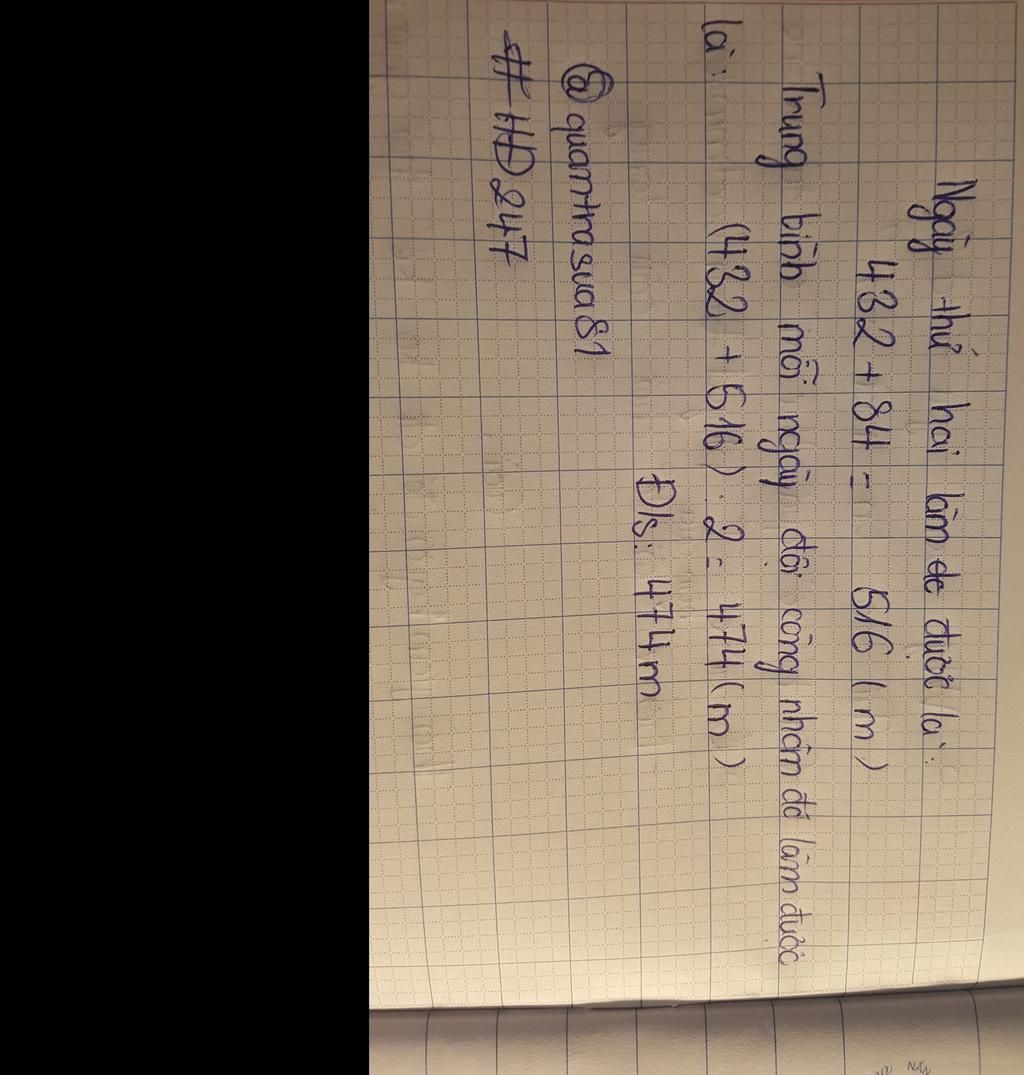 Ngày thứ hai làm đc được là:
432 + 84 = 516 (m)
Trung bình mỗi ngày đội công nhân đó làm được
là:
(432 + 516) : 2 = 474 (m)
Đ/s: 474 m
@quantrasua81
#HĐ247